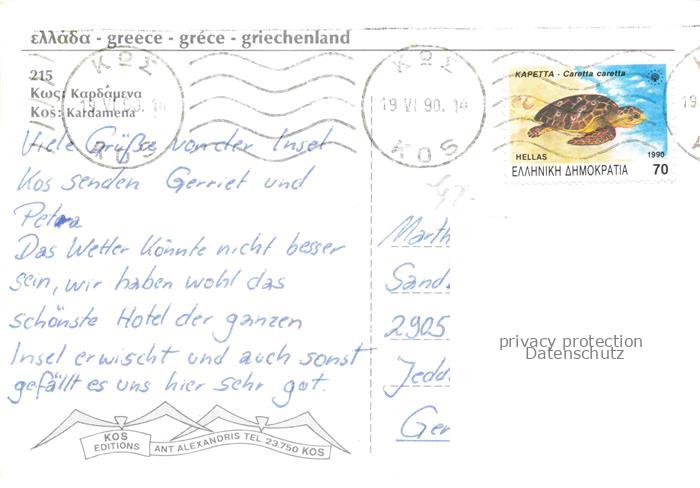 ελλάδα - greece - gréce - griechenland
215
Κως: Καρδάμενα
Kos: Kardamena
ΚΩΣ
19 VI 90. 14
KOS
ΚΩΣ
19 VI 90. 14
KOS
ΚΑΡΕΤΤΑ - Caretta caretta
HELLAS
1990
ΕΛΛΗΝΙΚΗ ΔΗΜΟΚΡΑΤΙΑ
70
Viele Grüße von der Insel
Kos senden Gerriet und
Petra
Das Wetter könnte nicht besser
sein, wir haben wohl das
schönste Hotel der ganzen
Insel erwischt und auch sonst
gefällt es uns hier sehr gut.
Marth
Sand
2905
Jedd
Ger
privacy protection
Datenschutz
KOS
EDITIONS
ANT. ALEXANDRIS TEL 23.750 KOS